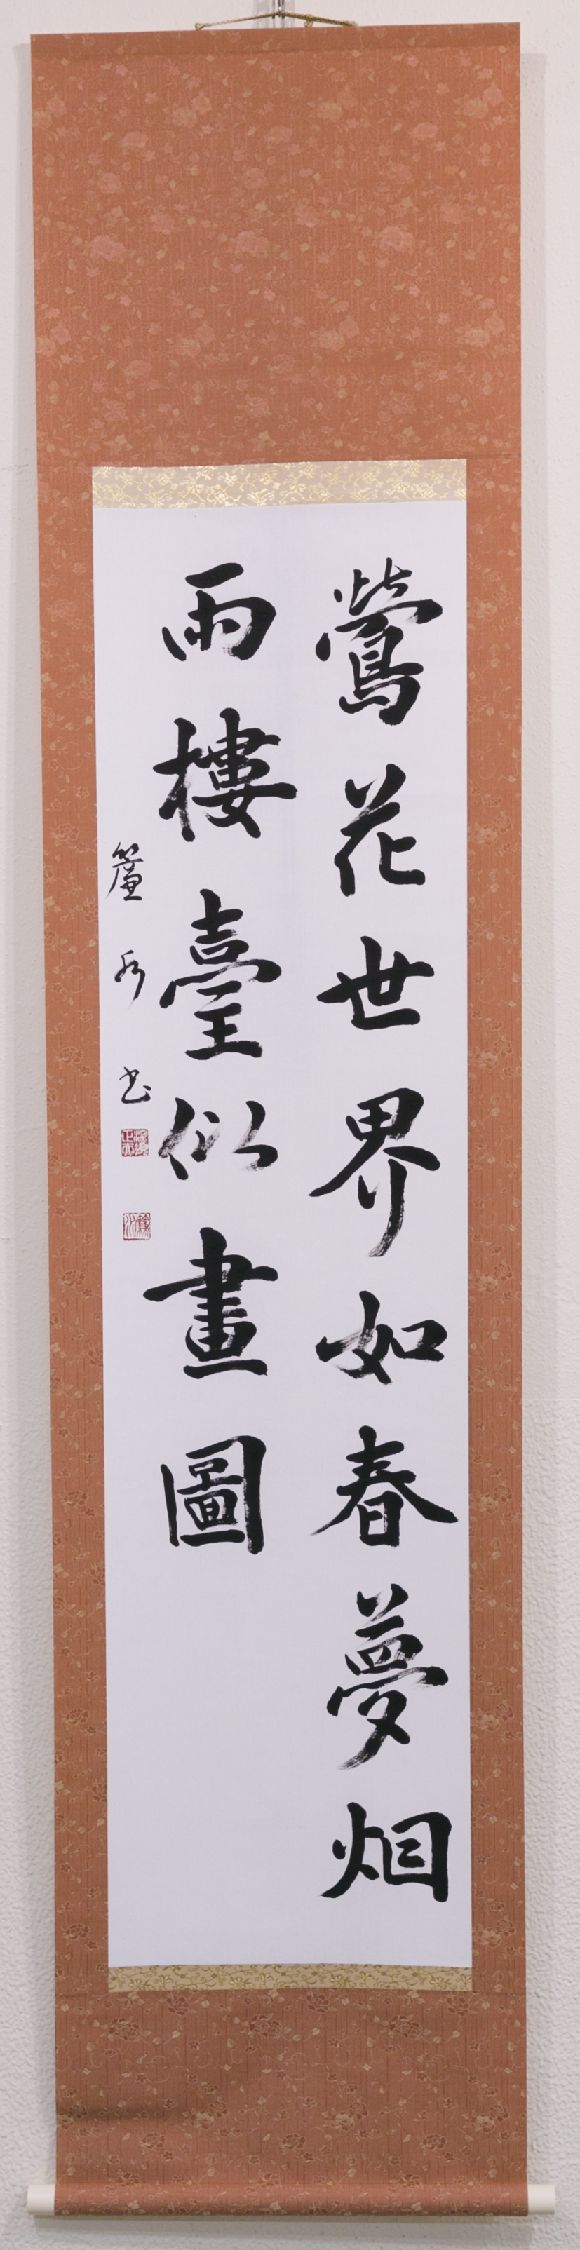 鶯花世界如春夢烟
雨樓臺似畫圖
簾水書